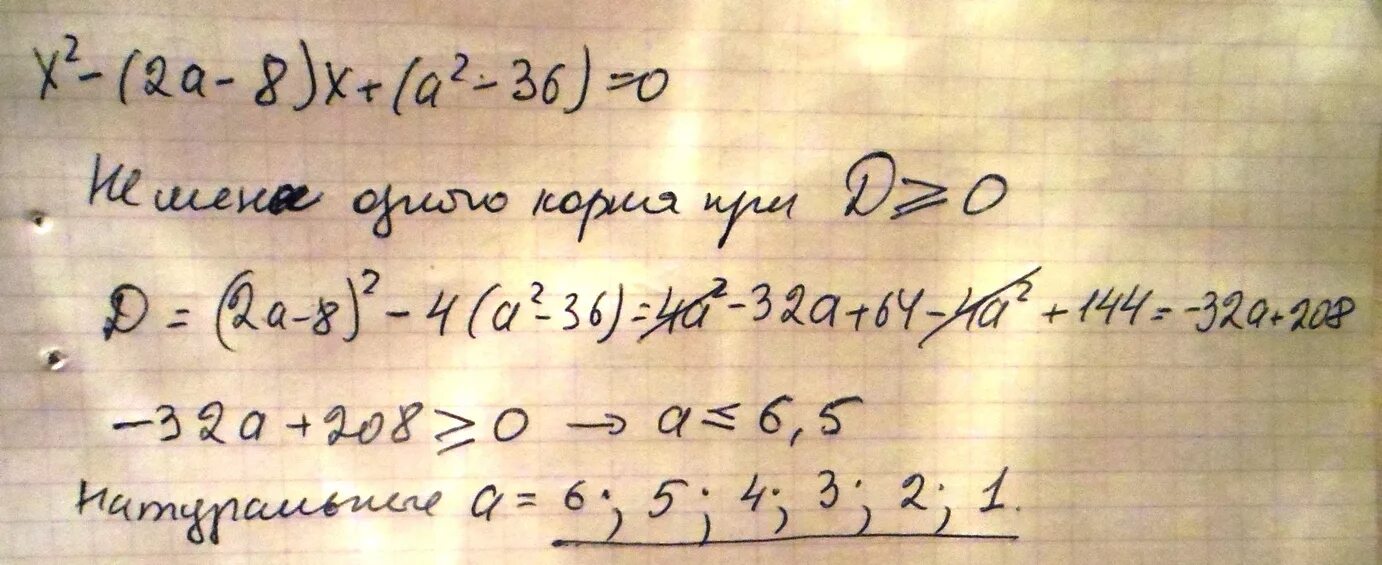 x² - (2a - 8)x + (a² - 36) = 0
Не менее одного корня при D ≥ 0
D = (2a - 8)² - 4(a² - 36) = 4a² - 32a + 64 - 4a² + 144 = -32a + 208
-32a + 208 ≥ 0 → a ≤ 6,5
Натуральные a = 6; 5; 4; 3; 2; 1.